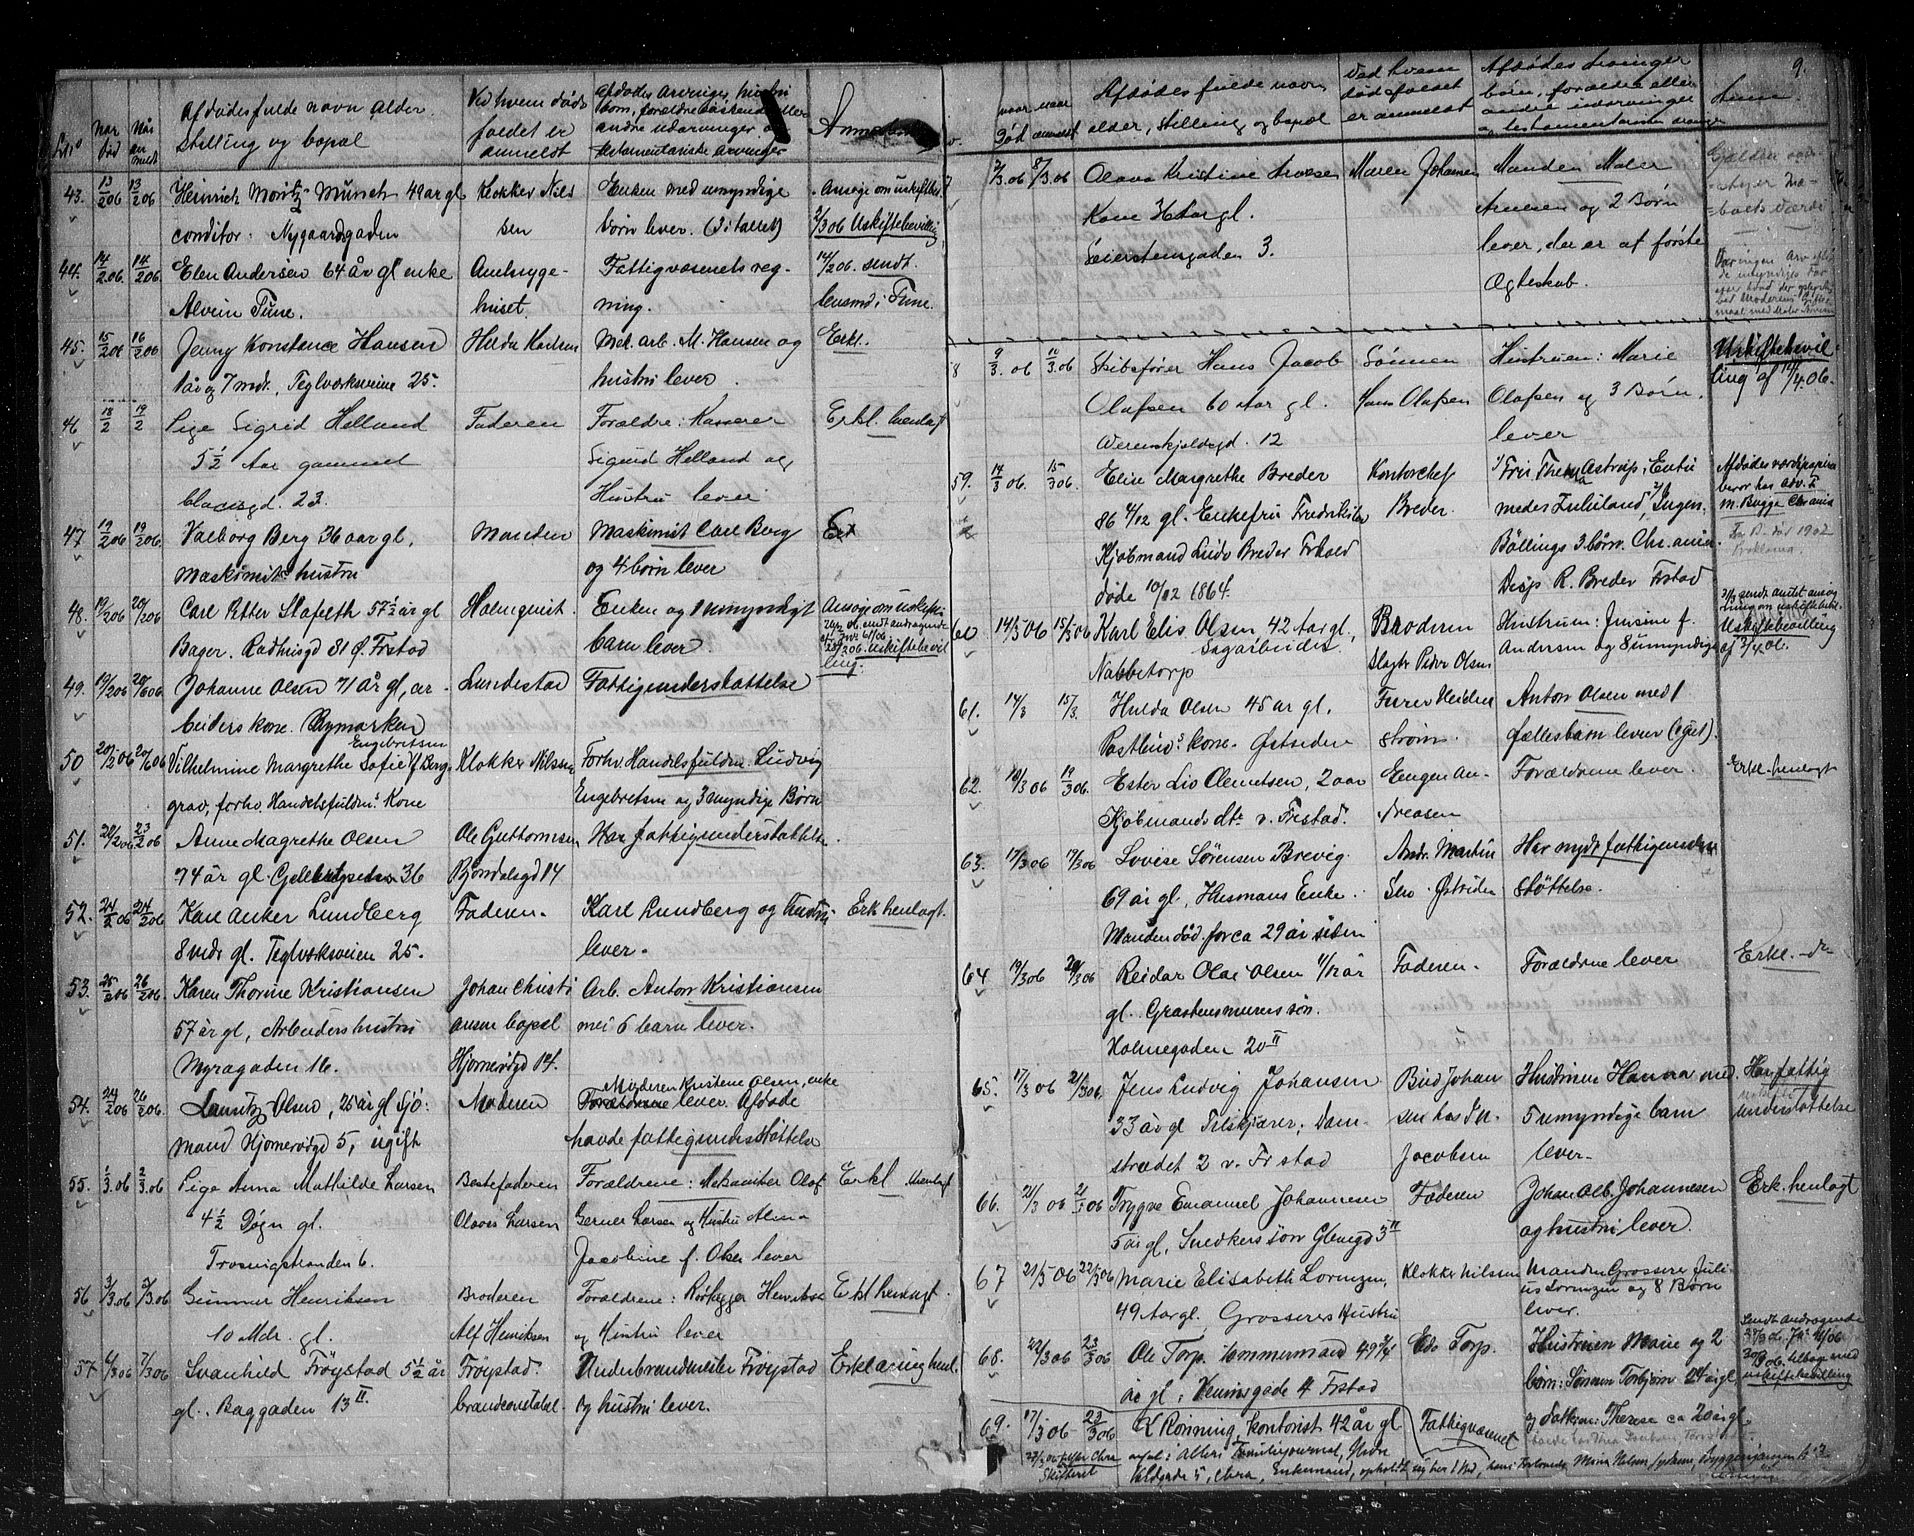 Afdødes fulde navn alder
Stilling og bopæl
Ved hvem døds
faldet er
anmeldt
Afdødes Arvinger, hustru
børn, forældre søskende eller
andre udarvinger og
testamentariske arvinger
43. 13/2 06 13/2 06 Heinrich Moritz Münch 49 aar gl
conditor. Nygaardsgaden
Klokker Nils
sen
Enken med umyndige
børn lever. (3 i tallet)
Ansøge om uskifte
2/3 06 Uskiftebevilling
44. 14/2 06 14/2 06. Elen Andersen 64 år gl enke
Alvein Tune.
Amtsyge-
huset
Fattigvæsenets reg-
ning.
14/2 06. sendt
lensmd i Tune.
45. 15/2 06 16/2 06 Jenny Konstance Hansen
1 år og 7 mdr. Teglværksveien 25.
Hilda Karlsen
Mek. arb. M. Hansen og
hustru lever.
Erkl.
46 18/2 19/2 Pige Sigrid Helland
5 1/2 Aar gammel
23.
Faderen
Forældre: Kasserer
Sigurd Helland og
Hustru lever
Erkl. henlagt
47 19/2 06 19/2 06. Valborg Berg 36 aar gl,
Maskinists hustru
Manden
Maskinist Carl Berg
og 4 børn lever
48. 19/2 06 20/2 06 Carl Petter Stafseth 57 1/2 år gl
Bager. Raadhusgd 31 Ø. Frstad
Holmquist.
Enken og 1 umyndigt
barn lever.
Ansøge om uskifte
Uskiftebevil
ling.
49. 19/2 06 20/6 06 Johanne Olsen 71 år gl, ar
beiders kone. Rymarken
Lundestad
Fattigunderstøttelse
50 20/2 06 20/6 06 Vilhelmine Margrethe Sofie Engebretsen f Berg
grav, forhv. Handelsfuldm. Kone
Klokker Nilsen
Forhv. Handelsfuldm. Ludvig
Engebretsen og 3 myndige Børn
51. 20/2 06 23/2 06 Anne Magrethe Olsen
74 år gl. 36
Ole Guttormsen
Bjondalegd 14
Har fattigunderstøttelse.
52. 24/2 06 24/2 06 Karl Anker Lundberg
8 mdr gl. Teglværksveien 25.
Faderen.
Karl Lundberg og hustru
lever.
Erk henlagt.
53. 25/2 06 26/2 06. Karen Thorine Kristiansen
57 år gl, Arbeiders hustru
Myragaden 16.
Johan Christi
ansen bopæl
Hjornerødgd 14.
Arb. Anton Kristiansen
med 6 barn lever.
54. 24/2 06 26/2 06. Lauritz Olsen, 25 år gl Sjø
mand Hjornerødgd 5, ugift
Moderen
Moderen Kristine Olsen, enke
Forældrene lever. Afdøde
havde fattigunderstøttelse
55. 1/3. 06 2/3. 06 Pige Anna Mathilde Larsen
4 1/2 Døgn gl.
Trosvigstranden 6.
Bestefaderen
Olavis Larsen
Forældrene: Mekaniker Olaf
Gerner Larsen og Hustru Alma
Jacobine f. Olsen lever
Erkl henlagt
56 3/3. 06 5/3 06 Gunnar Henriksen
10 Mdr. gl.
Broderen
Alf Henriksen
Forældrene: Rørlægger Henriksen
og Hustru lever
Erkl henlagt.
57 6/3 06 7/3 06 Svanhild Frøystad 5 1/2 år
gl. Baggaden 13 II.
Frøystad.
brandconstabel.
Underbrandmester Frøystad
og hustru lever.
Erklæring henl.
9.
naar død naar anmeldt
Afdødes fulde navn
alder, stilling og bopæl
Ved hvem
dødsfaldet
er anmeldt
Afdødes arvinger
børn, forældre eller
andre udarvinger
og testamentariske arvinger
Anm.
7/3. 06 8/3. 06 Olava Kristine Arnesen
Kone 36 Aar gl.
Seierstensgaden 3.
Maren Johansen
Manden Maler
Arnesen og 2 Børn
lever, der er af første
Ægteskab.
8 9/3. 06 11/3. 06 Skibsfører Hans Jacob
Olafsen 60 Aar gl.
Werenskjoldsgd. 12
Sønnen
Hans Olafsen
Hustruen: Marie
Olafsen og 3 Børn.
lever
Uskiftebevil
ling af 17/4. 06.
59. 14/3 06. 15/3 06. Elise Margrethe Breder
86 4/12 gl. Enkefru Fredriksten
Kjøbmand Ludv Breder Frhald
døde 10/12 1864.
Kontorchef
Breder.
1/ Fru Thea Astrup, Entu
medes Zululand, 2/ Ingen.
Bøllings 3 børn. Chr.ania
Disp R. Breder Frstad
Afdødes værdipapirer
beror hos adv. F
M. Bugge Chr.ania
60 14/3 06 15/3 06 Karl Elis Olsen, 42 Aar gl.,
Sagarbeider
Nabbetorp
Broderen
Slagter Peder Olsen
Hustruen: Jensine f.
Andersen og 8 umyndige
Uskiftebevilling
af 2/4. 06.
61. 14/3 15/3. Hulda Olsen 45 ar gl.
Postbud's kone. Østsiden
Furer Heiden
Strøm.
Anton Olsen med 1
fællesbarn lever (gut).
62. 18/3 06 19/3 06. Ester Liv Clementsen, 2 aar
Kjøbmands dtr v. Frstad.
Eugen An-
dreasen
Forældrene lever.
Erkl henlagt
63. 17/3 06 19/3 06 Lovise Sørensen Brevig
69 år gl, Husmans Enke.
Manden død for ca 29 år siden
Andr. Martin
Sen Østsiden
Har nydt fattigunder
støttelse.
64 19/3 06 20/3 06 Reidar Olai Olsen 1/12 år
gl. Graastensmurers søn.
Holmegaden 20 II
Faderen.
Forældrene lever
Erkl.
65. 17/3 06 21/3 06. Jens Ludvig Johansen
33 år gl Tilskjærer, Dam-
strædet 2 v. Frstad
Bud Johan
sen hos I. N.
Jacobsen
Hustruen Hanna med
5 umyndige barn
lever.
Har fattig
understøttelse
66. 21/3 06 21/3 06 Trygve Emanuel Johannesen
5 år gl, Snedkers søn Glemgd 3 II
Faderen
Johan Alb. Johannesen
og hustru lever.
Erk. henlagt
67 21/3 06 22/3 06 Marie Elisabeth Lorenzen,
49 Aar gl. Grosserers Hustru
Klokker Nilssen
Manden Grosserer Juli
us Lorenzen og 8 Børn
lever.
68. 22/3 06 23/3 06 Ole Torp. tømmermand 49 3/4
år gl, Henningade 4 Frstad
Edv Torp.
Hustruen Marie og 2
børn: Sønnen Torbjørn 24 år gl
og Datteren: Therese ca 20 år gl
Sendt andragende
30/3 06. tilbage med
uskiftebevilling
69. 17/3 06 23/3 06 K Rønning, kontorist 42 år gl
Fattigvæsenet
ansat i Allers Familiejournal,
5, Chra, Enkemand, opholdt sig her